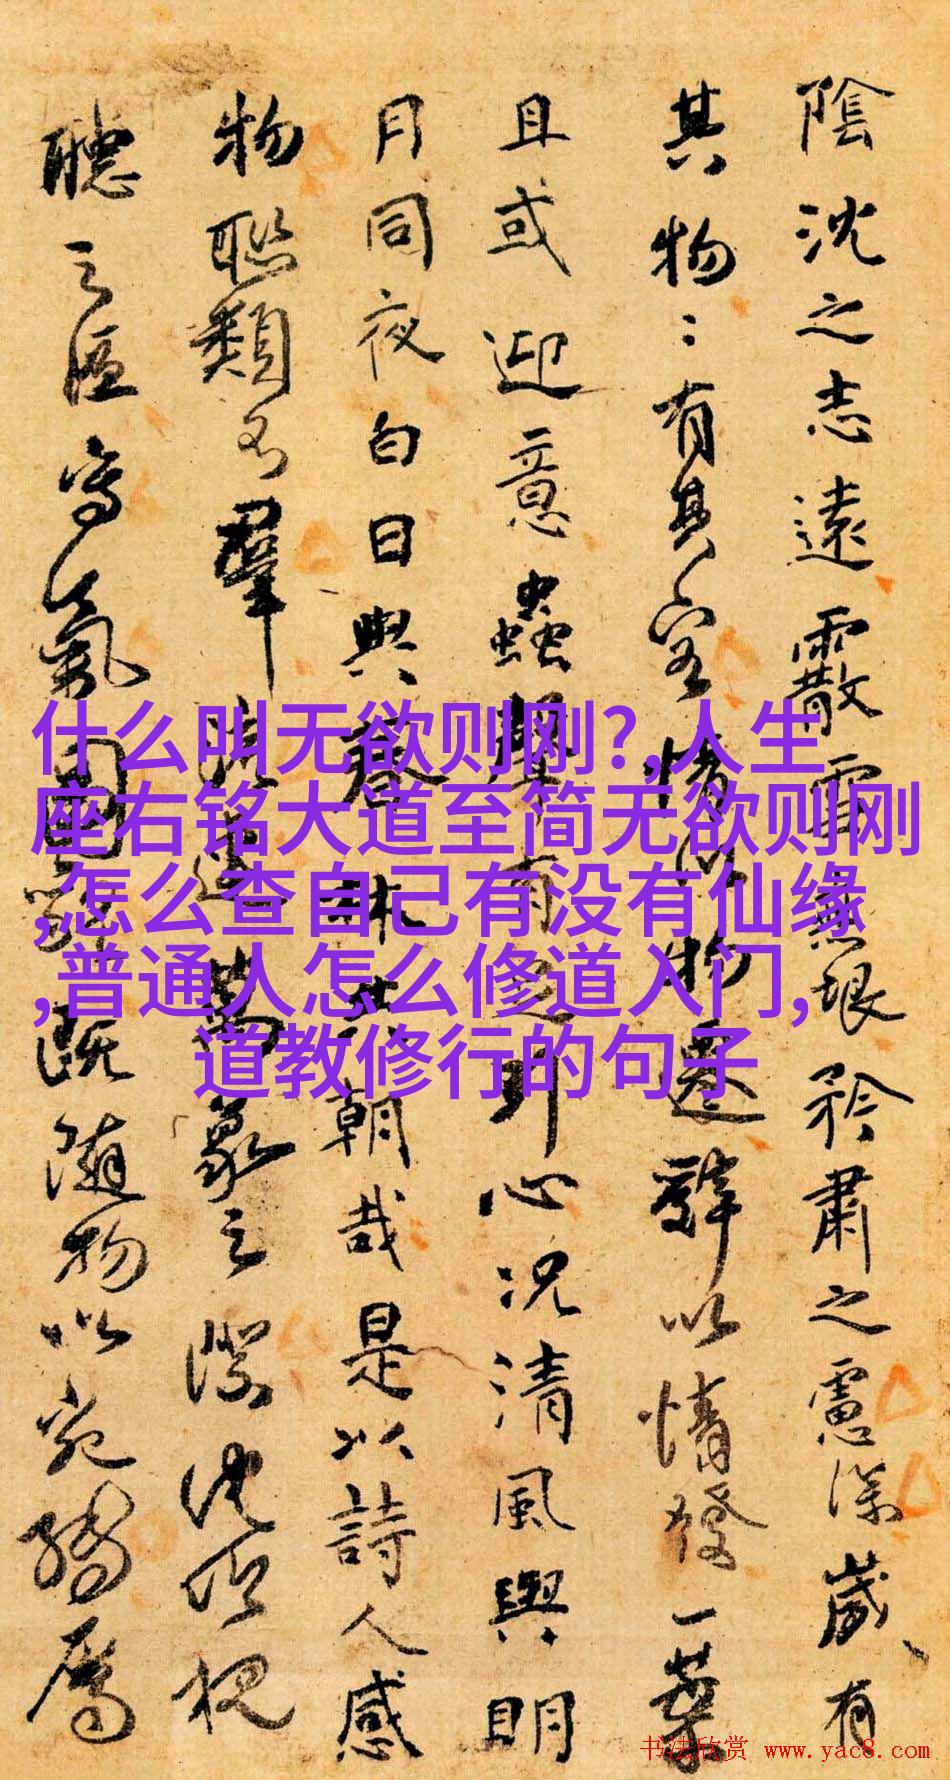 陰沈之志遠霰雪無垠矜肅之慮深歲有
其物〻有其容情以物遷辭以情發一葉
且或迎意蟲聲有足引心況清風與明
月同夜白日與春林共朝哉是以詩人感
物聯類不羣流連萬象之際沈吟視
聽之區寫氣圖貌既隨物以宛轉屬
什么叫无欲则刚?,人生
座右铭大道至简无欲则刚
,怎么查自己有没有仙缘
,普通人怎么修道入门,
道教修行的句子
书法欣赏 www.yac8.com